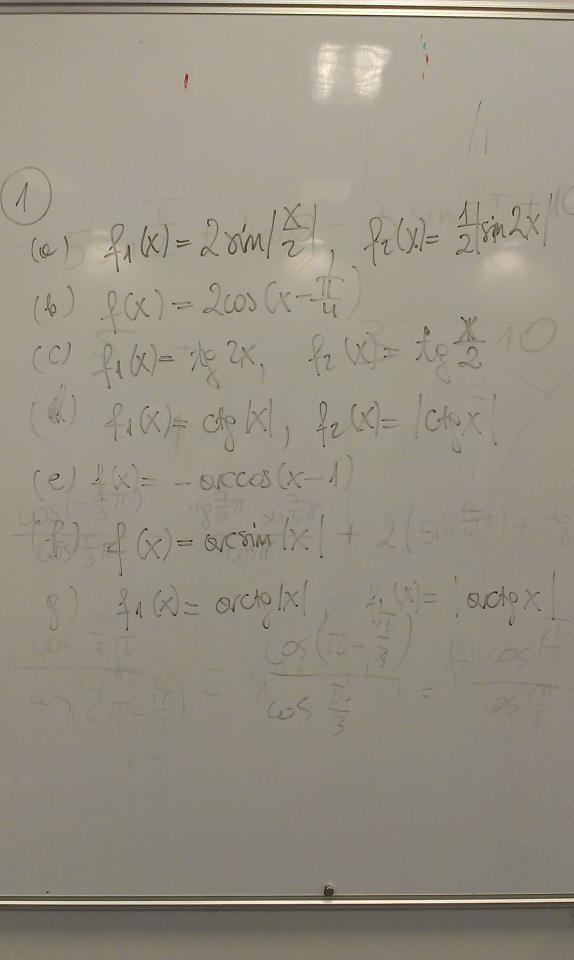 1
(a) f₁(x) = 2 sin|x/2|, f₂(x) = 1/2|sin 2x|
(b) f(x) = 2cos(x - π/4)
(c) f₁(x) = tg 2x, f₂(x) = tg x/2
(d) f₁(x) = ctg|x|, f₂(x) = |ctg x|
(e) f(x) = -arccos(x-1)
f) f(x) = arcsin|x|
g) f₁(x) = arctg|x|, f₂(x) = |arctg x|